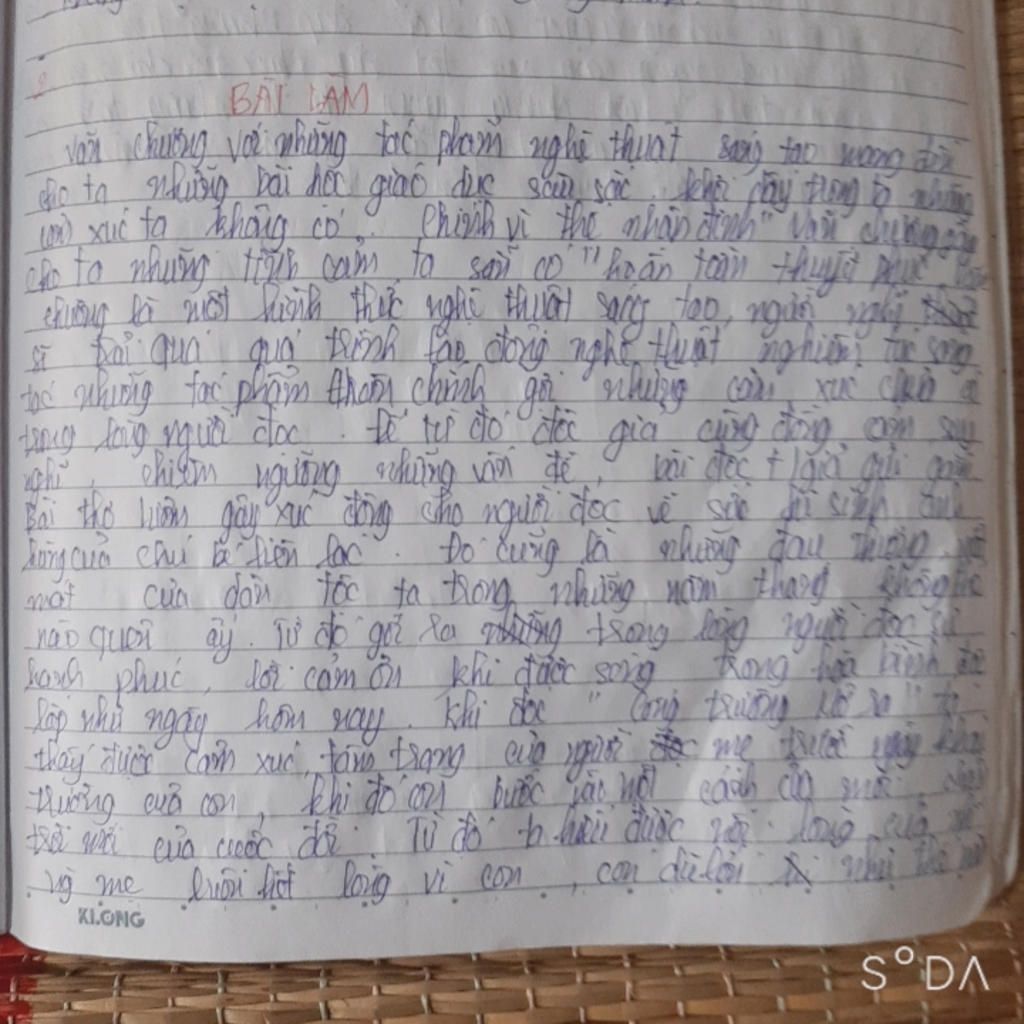 BÀI LÀM
Văn chương với những tác phẩm nghệ thuật sáng tạo mang đến
cho ta những bài học giáo dục sâu sắc. khơi dậy trong ta những
xúc ta không có. Chính vì thế nhận định "Văn chương gây
cho ta những tình cảm ta sẵn có" hoàn toàn thuyết phục.
chương là một hình thức nghệ thuật sáng tạo, người nghệ
sĩ trải qua quá trình lao động nghệ thuật nghiêm túc sáng
tác những tác phẩm thơm chính gợi những cảm xúc
trong lòng người đọc. Để từ đó độc giả cùng đồng cảm suy
nghĩ, chiêm ngưỡng những vấn đề,
Bài thơ luôn gây xúc động cho người đọc về sự hi sinh anh
hùng của chú bé liên lạc. Đó cũng là những đau thương
mát của dân tộc ta trong những năm tháng không
nào quên ấy. Từ đó gợi ra trong lòng người đọc
hạnh phúc, lời cảm ơn khi được sống trong hòa bình
lập như ngày hôm nay. Khi đọc "Cổng trường mở ra" ta
thấy được cảm xúc, tâm trạng của người mẹ trước ngày khai
trường của con, khi đó con bước vào một cánh cửa mới,
trời mới của cuộc đời. Từ đó ta hiểu được nỗi lòng của
mẹ luôn hết lòng vì con, con dù lớn như thế
KLONG
S°DA